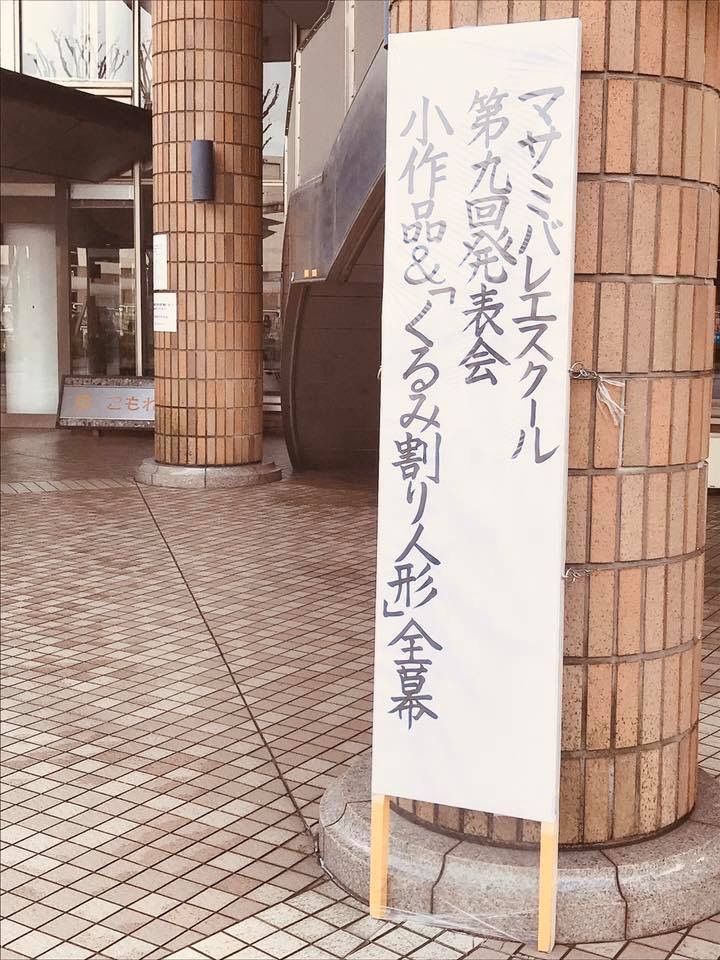 マサミバレエスクール
第九回発表会
小作品&「くるみ割り人形」全幕
こもれ